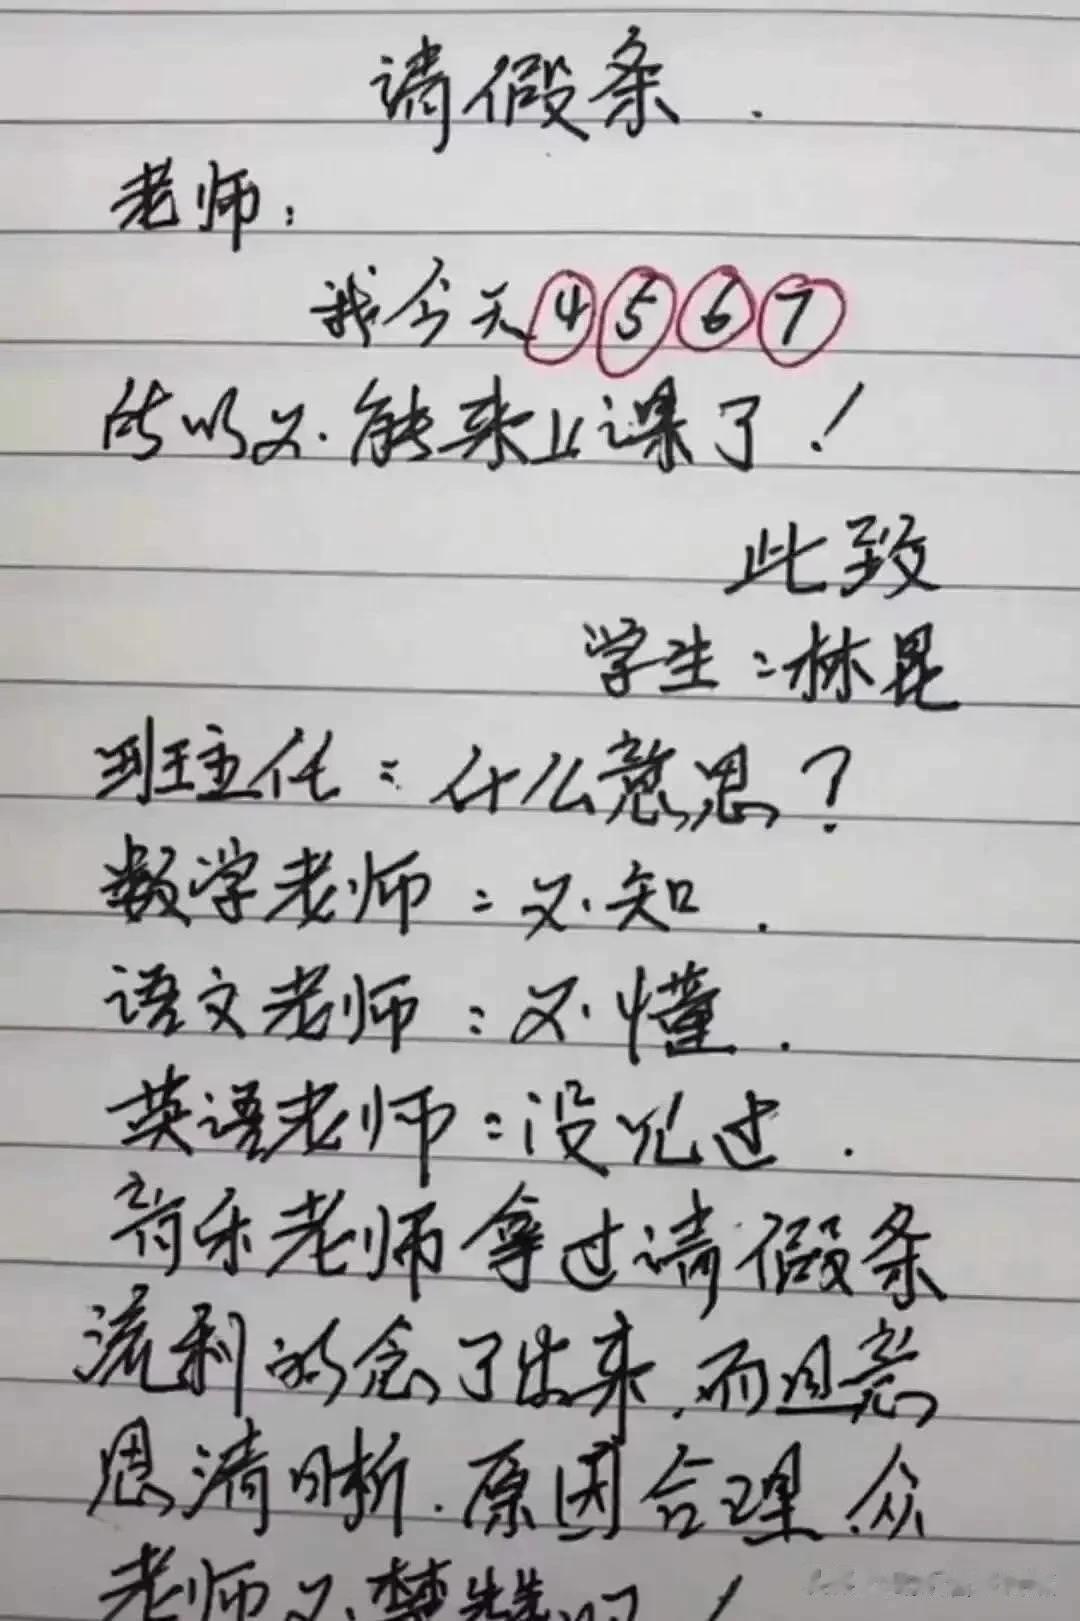 请假条.
老师:
我今天④⑤⑥⑦
所以不能来上课了!
此致
学生:林昆
班主任:什么意思?
数学老师:不知.
语文老师:不懂.
英语老师:没见过.
音乐老师拿过请假条
流利的念了出来,而且意
思清晰.原因合理,众
老师不禁